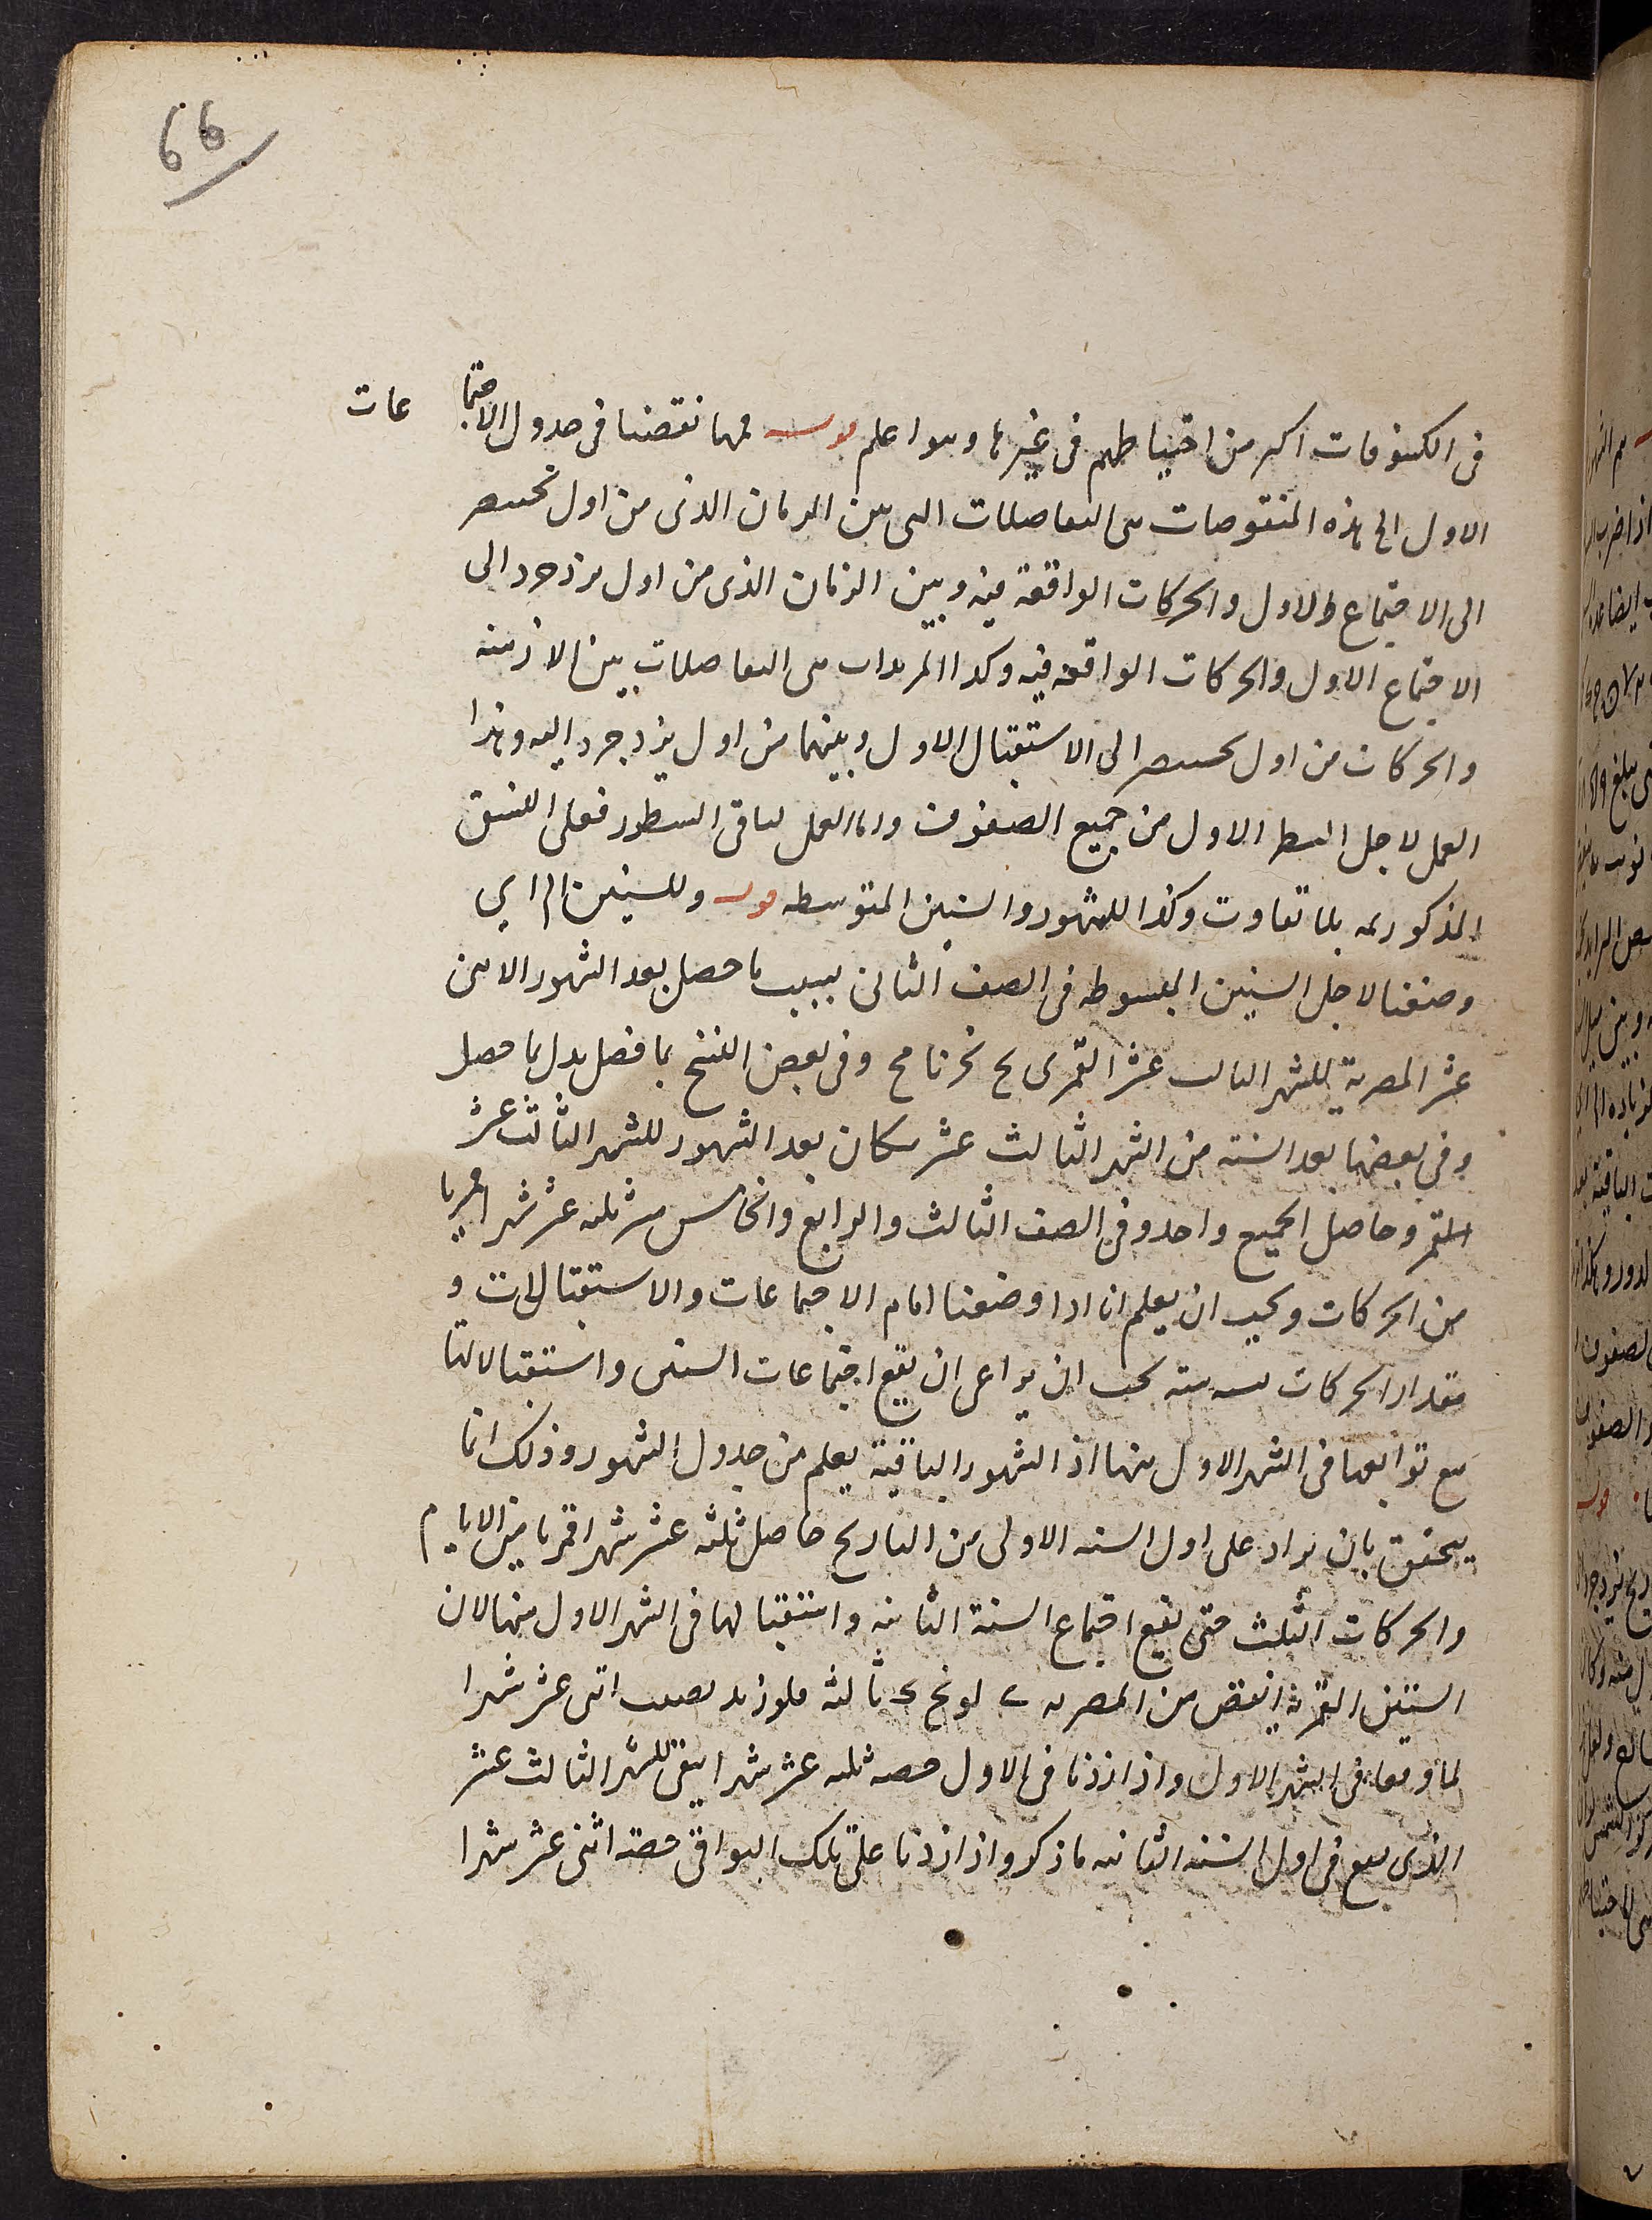 66
في الكسوفات اكثر من احتياطهم في غيرها وهوا علم قوله مهما نقصنا في جدول الاجتماعات
الاول الى هذه المنقوصات هي التفاضلات التي بين الزمان الذي من اول بختنصر
الى الاجتماع الاول والحركات الواقعة فيه وبين الزمان الذي من اول يزدجرد الى
الاجتماع الاول والحركات الواقعه فيه وكذا المزيدات هي التفاضلات بين الازمنه
والحركات من اول بختنصر الى الاستقبال الاول وبينهما من اول يزدجرد اليه وهذا
العمل لاجل السطر الاول من جميع الصفوف واما العمل لباقي السطور فعلى النسق
المذكور بلا تفاوت وكذا للشهور والسنين المتوسطه قوله وللسنين الم اى
وضعنا لاجل السنين المبسوطه في الصف الثاني بسبب ما حصل بعد الشهور الاثنى
عشر المصرية للشهر الثالث عشر القمرى وفي بعض النسخ ما فضل بدل ما حصل
وفي بعضها بعد السنة من الشهر الثالث عشر مكان بعد الشهور للشهر الثالث عشر
القمر وحاصل الجميع واحد وفي الصف الثالث والرابع والخامس ثلثه عشر شهرا قمريا
من الحركات ويجب ان يعلم انا اذا وضعنا امام الاجتماعات والاستقبالات و
مقدار الحركات يجب ان يراعى ان يقع اجتماعات السنين واستقبالاتها
مع توابعها في الشهر الاول منها اذ الشهور الباقية يعلم من جدول الشهور وذلك انما
يتحقق بان يزاد على اول السنه الاولى من التاريخ حاصل ثلثه عشر شهرا قمريا من الايام
والحركات الثلث حتى يقع اجتماع السنة الثانيه واستقبالها في الشهر الاول منها لان
السنين القمرية انقص من المصريه ثالثة فلو زيد نصيب اثنى عشر شهرا
لما وقعا في الشهر الاول واذا زدنا في الاول حصه ثلثه عشر شهرا يبقى للشهر الثالث عشر
الذي يقع في اول السنه الثانيه ما ذكر واذا زدنا على تلك البواقي حصة اثنى عشر شهرا